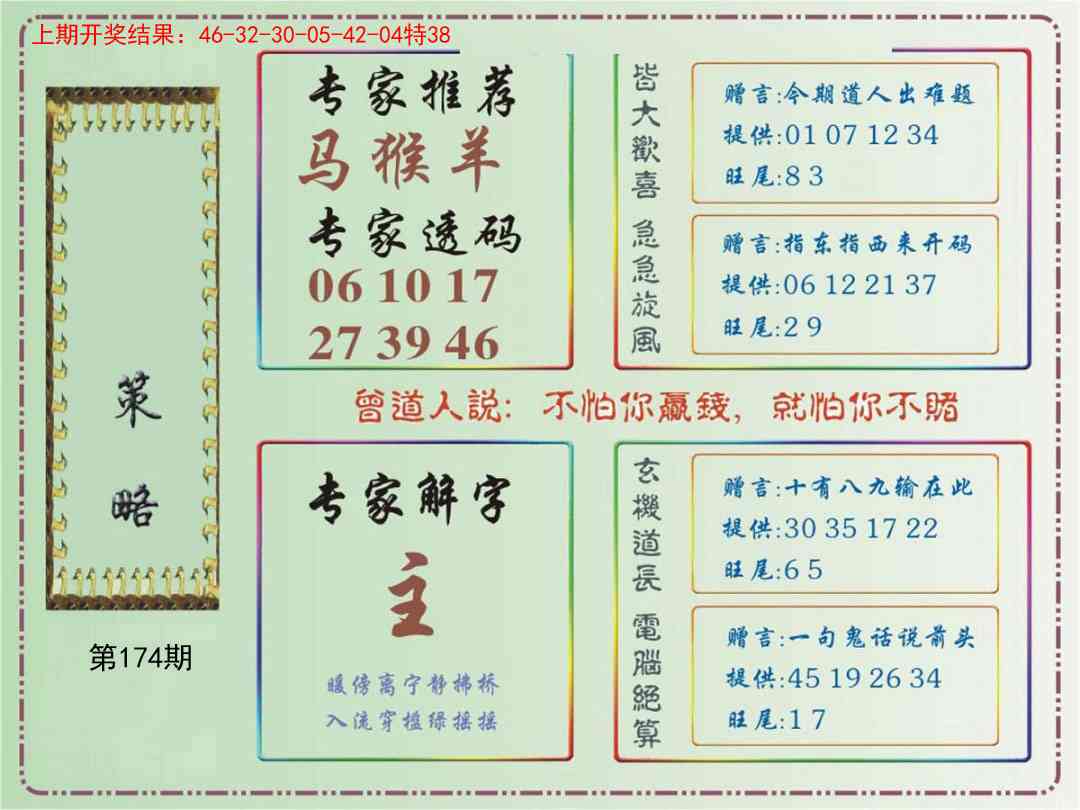 上期开奖结果：46-32-30-05-42-04特38
策略
第174期
专家推荐
马猴羊
专家透码
06 10 17
27 39 46
皆大歡喜
赠言:今期道人出难题
提供:01 07 12 34
旺尾:8 3
急急旋風
赠言:指东指西来开码
提供:06 12 21 37
旺尾:2 9
曾道人説：不怕你贏錢，就怕你不賭
专家解字
主
暖傍离宁静拂桥
入流穿槛绿摇摇
玄機道長
赠言:十有八九输在此
提供:30 35 17 22
旺尾:6 5
電腦絕算
赠言:一句鬼话说前头
提供:45 19 26 34
旺尾:1 7